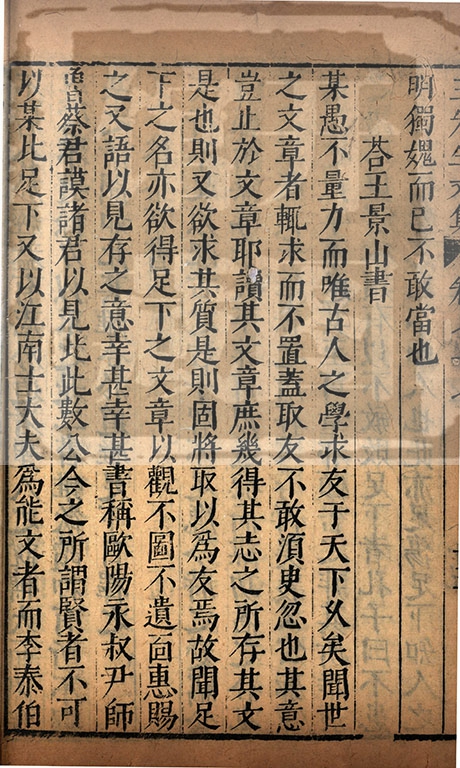 明獨媿而已不敢當也
荅王景山書
某愚不量力而唯古人之學求友于天下乆矣聞世
之文章者輒求而不置蓋取友不敢須臾忽也其意
豈止於文章耶讀其文章庶幾得其志之所存其文
是也則又欲求其質是則固將取以爲友焉故聞足
下之名亦欲得足下之文章以觀不圖不遺而惠賜
之又語以見存之意幸甚幸甚書稱歐陽永叔尹師
魯蔡君謨諸君以見比此數公今之所謂賢者不可
以某比足下又以江南士大夫爲能文者而李泰伯